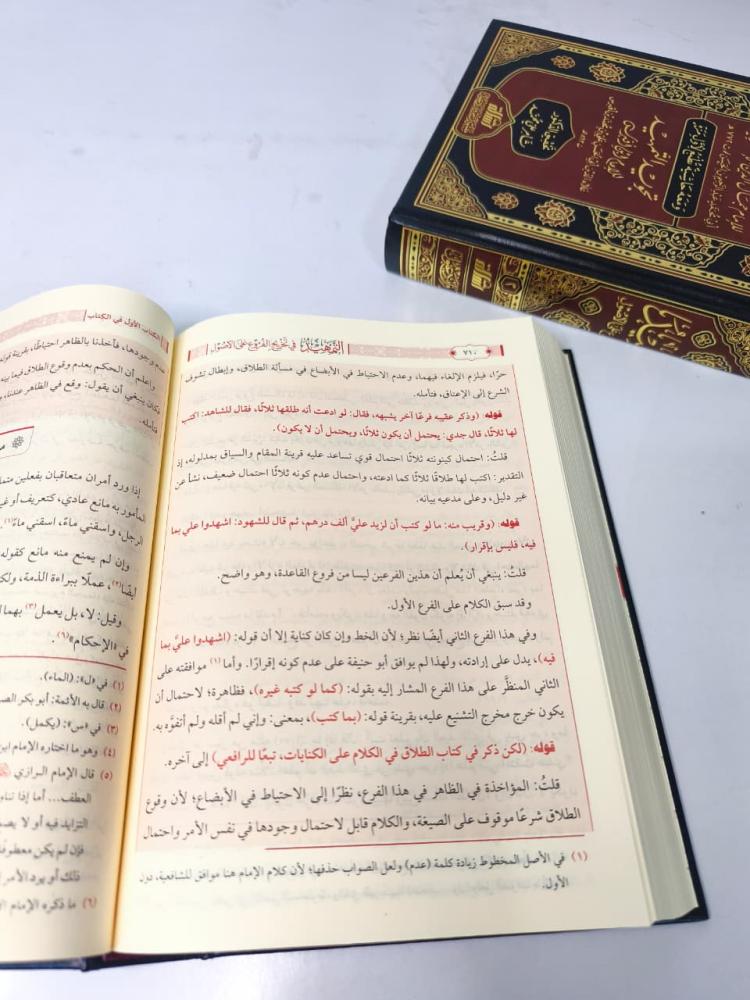 ٧١٠
التمهيد في تخريج الفروع على الأصول
حرًّا، فيلزم الإلغاء فيهما، وعدم الاحتياط في الأبضاع في مسألة الطلاق، وإبطال تشوف
الشرع إلى الإعتاق، فتأمله.
قوله: (وذكر عقيبه فرعًا آخر يشبهه، فقال: لو ادعت أنه طلقها ثلاثًا، فقال للشاهد: اكتب
لها ثلاثًا، قال جدي: يحتمل أن يكون ثلاثًا، ويحتمل أن لا يكون).
قلتُ: احتمال كينونته ثلاثًا احتمال قوي تساعد عليه قرينة المقام والسياق بمدلوله، إذ
التقدير: اكتب لها طلاقًا ثلاثًا كما ادعته، واحتمال عدم كونه ثلاثًا احتمال ضعيف، نشأ عن
غير دليل، وعلى مدعيه بيانه.
قوله: (وقريب منه: ما لو كتب أن لزيد عليَّ ألف درهم، ثم قال للشهود: اشهدوا عليَّ بما
فيه، فليس بإقرار).
قلتُ: ينبغي أن يُعلم أن هذين الفرعين ليسا من فروع القاعدة، وهو واضح.
وقد سبق الكلام على الفرع الأول.
وفي هذا الفرع الثاني أيضًا نظر؛ لأن الخط وإن كان كناية إلا أن قوله: (اشهدوا عليَّ بما
فيه)، يدل على إرادته، ولهذا لم يوافق أبو حنيفة على عدم كونه إقرارًا. وأما (١) موافقته على
الثاني المنظَّر على هذا الفرع المشار إليه بقوله: (كما لو كتبه غيره)، فظاهرة؛ لاحتمال أن
يكون خرج مخرج التشنيع عليه، بقرينة قوله: (بما كتب)، بمعنى: وإني لم أقله ولم أتفوَّه به.
قوله: (لكن ذكر في كتاب الطلاق في الكلام على الكنايات، تبعًا للرافعي) إلى آخره.
قلتُ: المؤاخذة في الظاهر في هذا الفرع، نظرًا إلى الاحتياط في الأبضاع؛ لأن وقوع
الطلاق شرعًا موقوف على الصيغة، والكلام قابل لاحتمال وجودها في نفس الأمر واحتمال
(١) في الأصل المخطوط زيادة كلمة (عدم) ولعل الصواب حذفها؛ لأن كلام الإمام هنا موافق للشافعية، دون
الأول.
الكتاب الأول في الكتاب
عدم وجودها، فأخذنا بالظاهر احتياطًا، بقرينة قوله
واعلم أن الحكم بعدم وقوع الطلاق فيما بينه
وكان ينبغي أن يقول: وقع في الظاهر عندنا،
فتأمله.
إذا ورد أمران متعاقبان بفعلين
المأمور به مانع عادي، كتعريف أو غير
الرجل، واسقني ماءً، اسقني ماءً (١).
وإن لم يمنع منه مانع كقوله
أيضًا (٢)، عملًا ببراءة الذمة، ولكن
وقيل: لا، بل يعمل (٣) بهما
في «الإحكام» (٦).
(١) في «ل»: (الماء).
(٢) قال به الأئمة: أبو بكر
(٣) في «س»: (يكمل).
(٤) وهو ما اختاره الإمام
(٥) قال الإمام الرازي
العطف... أما إذا
التزايد فيه أو لا
فإن لم يكن معطوفًا
ذلك أو يرد الأمر
(٦) ما ذكره الإمام